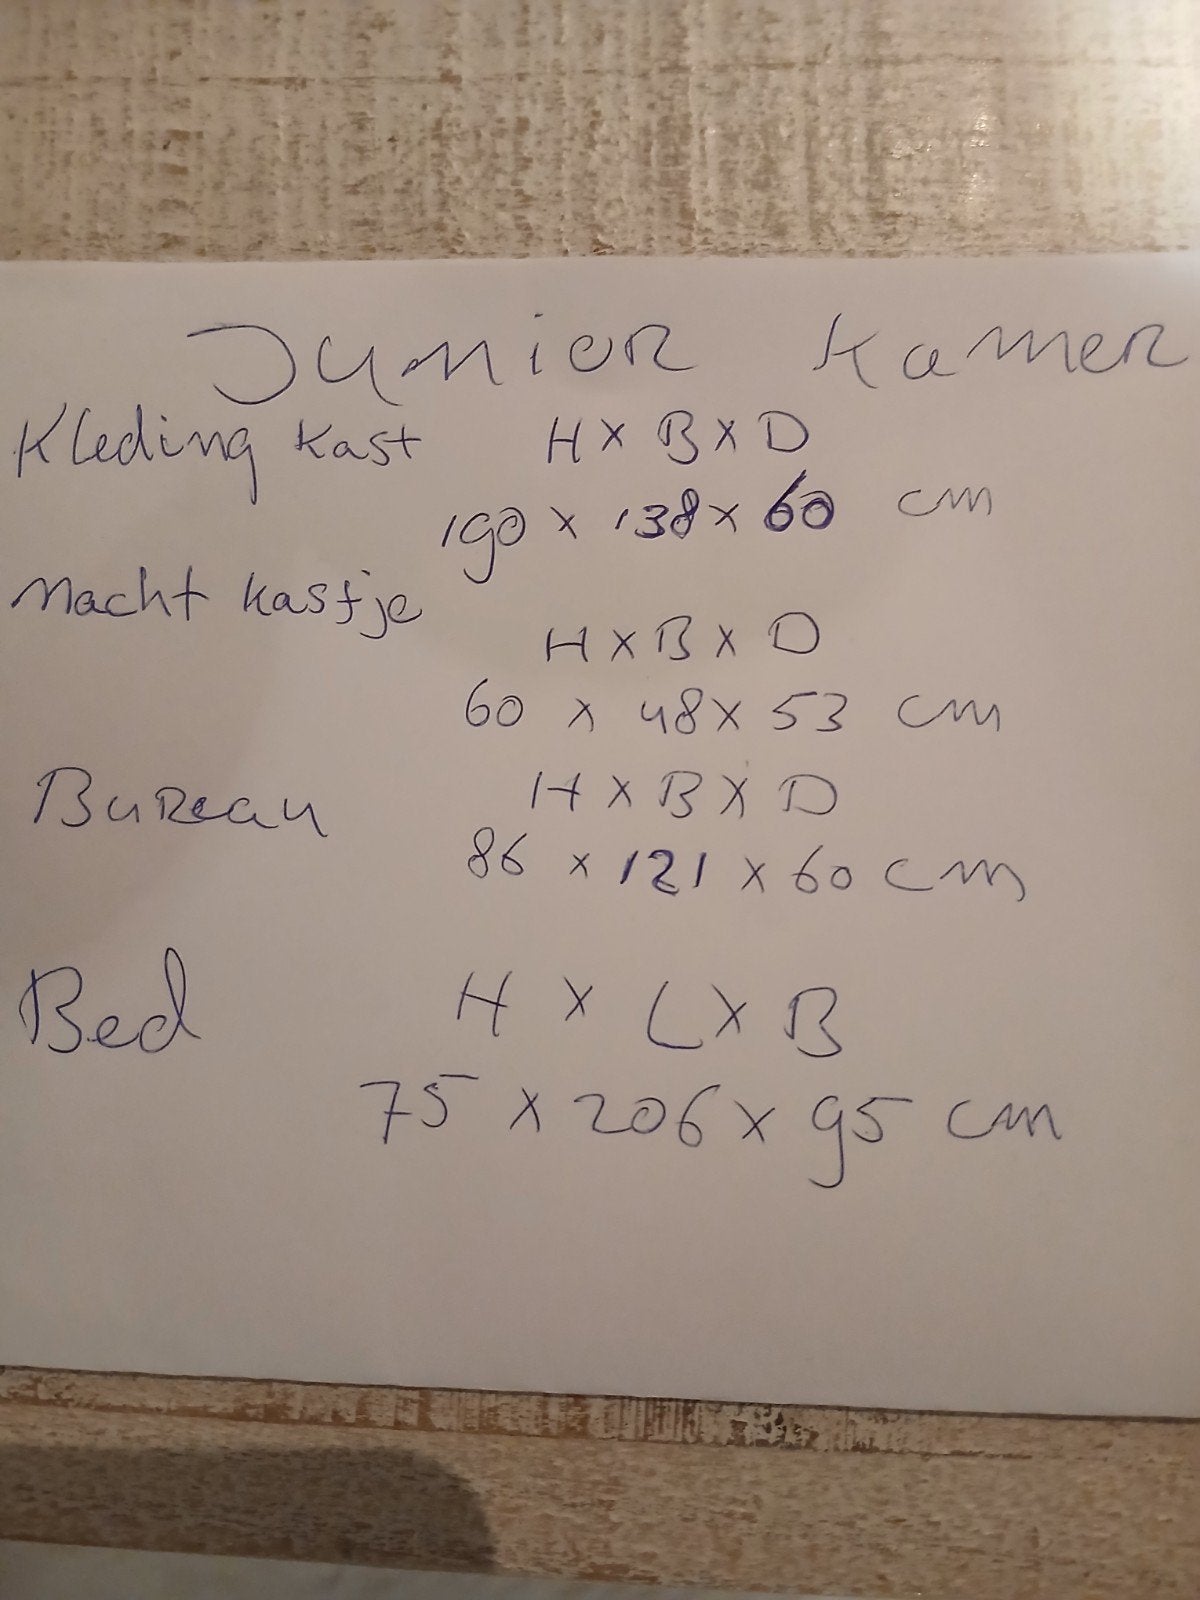 Junior Kamer
Kleding kast H x B x D
190 x 138 x 60 cm
Nacht kastje
H x B x D
60 x 48 x 53 cm
Bureau H x B x D
86 x 121 x 60 cm
Bed H x L x B
75 x 206 x 95 cm